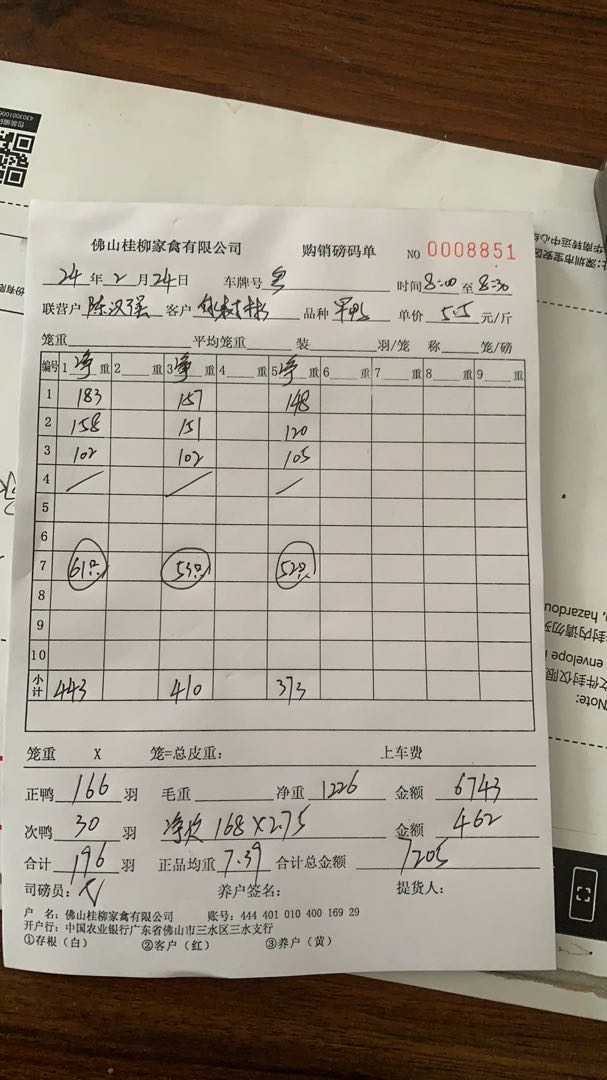 佛山桂柳家禽有限公司 购销磅码单 NO 0008851
24年2月24日 车牌号 时间8:00至8:30
联营户 陈汉强 客户 品种 单价 5.5 元/斤
笼重 平均笼重 装 羽/笼 称 笼/磅
编号 1 净 重 2 重 3 净 重 4 重 5 净 重 6 重 7 重 8 重 9 重
1 183 157 148
2 158 151 120
3 102 102 105
4 / / /
5
6
7 61只 53只 52只
8
9
10
小计 443 410 373
笼重 X 笼=总皮重: 上车费
正鸭 166 羽 毛重 净重 1226 金额 6743
次鸭 30 羽 净次 168 X 2.75 金额 462
合计 196 羽 正品均重 7.39 合计总金额 7205
司磅员: 养户签名: 提货人:
户 名: 佛山桂柳家禽有限公司 账号: 444 401 010 400 169 29
开户行: 中国农业银行广东省佛山市三水区三水支行
①存根(白) ②客户(红) ③养户(黄)